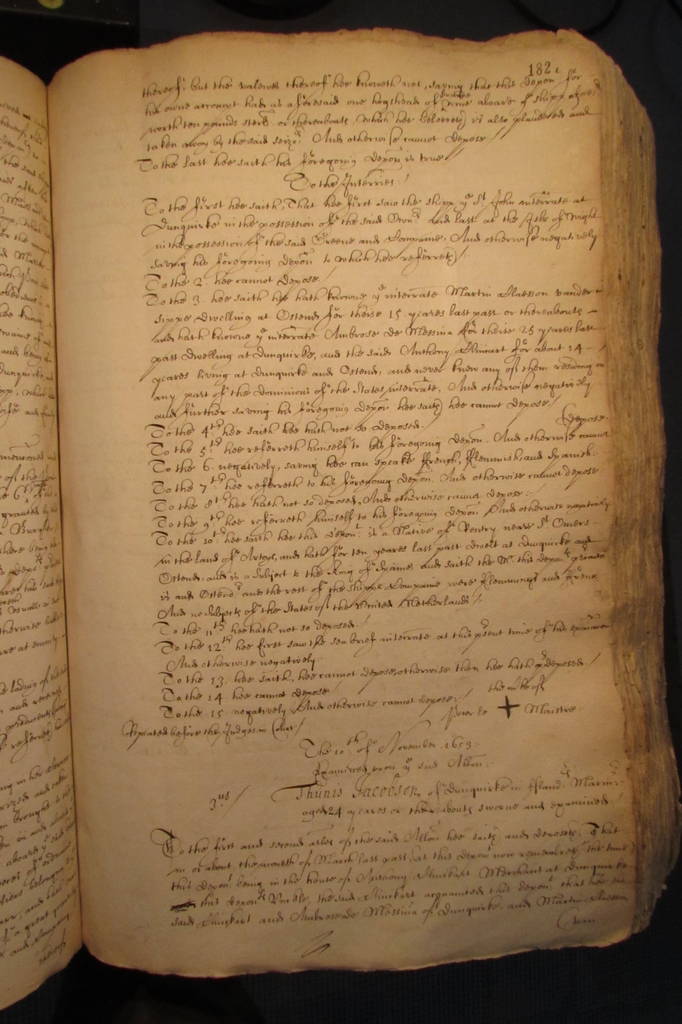 182
thereof, but the valewe thereof hee knoweth not, saying that this depont for
his owne account had as aforesaid one hogshead of wine aboard of shipp
worth ten pounds sterl or thereabouts, which hee beleeveth is also plundered and
taken away by the said seizors. And otherwise cannot depose.
To the last hee saith his foregoing deposn is true.
To the Interries.
To the first hee saith, That hee first saw the shipp the St John interrate at
Dunquirke in the possession of the said and last at the Isle of Wight
in the possession of the said Greene and Companie. And otherwise negatively
saving his foregoing deposn to which hee referreth.
To the 2. hee cannot depose.
To the 3. hee saith hee hath knowne the interrate Martin Claeson vander
dwelling at Ostend for theise 15 yeares last past or thereabouts
and hath knowne the interrate Ambrose de Messina for theise 25 yeares last
past dwelling at Dunquirke, and the said Anthony for about 14
yeares living at Dunquirke and Ostend, and never knew any of them residing in
any part of the dominions of the States interrate, And otherwise negatively
and further saving his foregoing deposn hee saith hee cannot depose.
To the 4th hee saith hee hath not so deposed.
To the 5th hee referreth himself to his foregoing deposn. And otherwise cannot depose.
To the 6. negatively, saving hee can speake French, Flemmish, and Spanish.
To the 7th hee referreth to his foregoing deposn. And otherwise cannot depose
To the 8th hee hath not so deposed, And otherwise cannot depose.
To the 9th hee referreth himself to his foregoing deposn And otherwise negatively
To the 10th hee saith hee this deponent is a Native of nere St Omers
in the land of Artoys, and hath for ten yeares last past dwelt at Dunquirke and
Ostend, and is a subject to the King of Spaine, and saith the Mr this deponts
is and the rest of the shipps Companie were Flemmings and
And no subjects of the States of the United Netherlands.
To the 11th hee hath not so deposed.
To the 12th hee first saw the sea brief interrate at this present time of his examinacon
And otherwise negatively.
To the 13. hee saith, hee cannot depose otherwise then hee hath predeposed.
To the 14 hee cannot depose
To the 15 negatively, And otherwise cannot depose.
the marke of
Pierre + Maistre
Repeated before the Judges in Court.
The 10th of November 1653.
Examined upon the said Allon.
3us
Thunis Jacobsen of Dunquirke in Flandrs Marinr
aged 24 yeares or thereabouts sworne and examined.
To the first and second arles of the said Allon hee saith and deposeth, That
in or about the moneth of March last past, as this depont now remembreth the time
this depont being in the house of Anthony Merchant at Dunquirke
this deponts Unckle, the said acquainted this depont that hee the
said and Ambrose de Messina of Dunquirke, and Martin Claeson
van